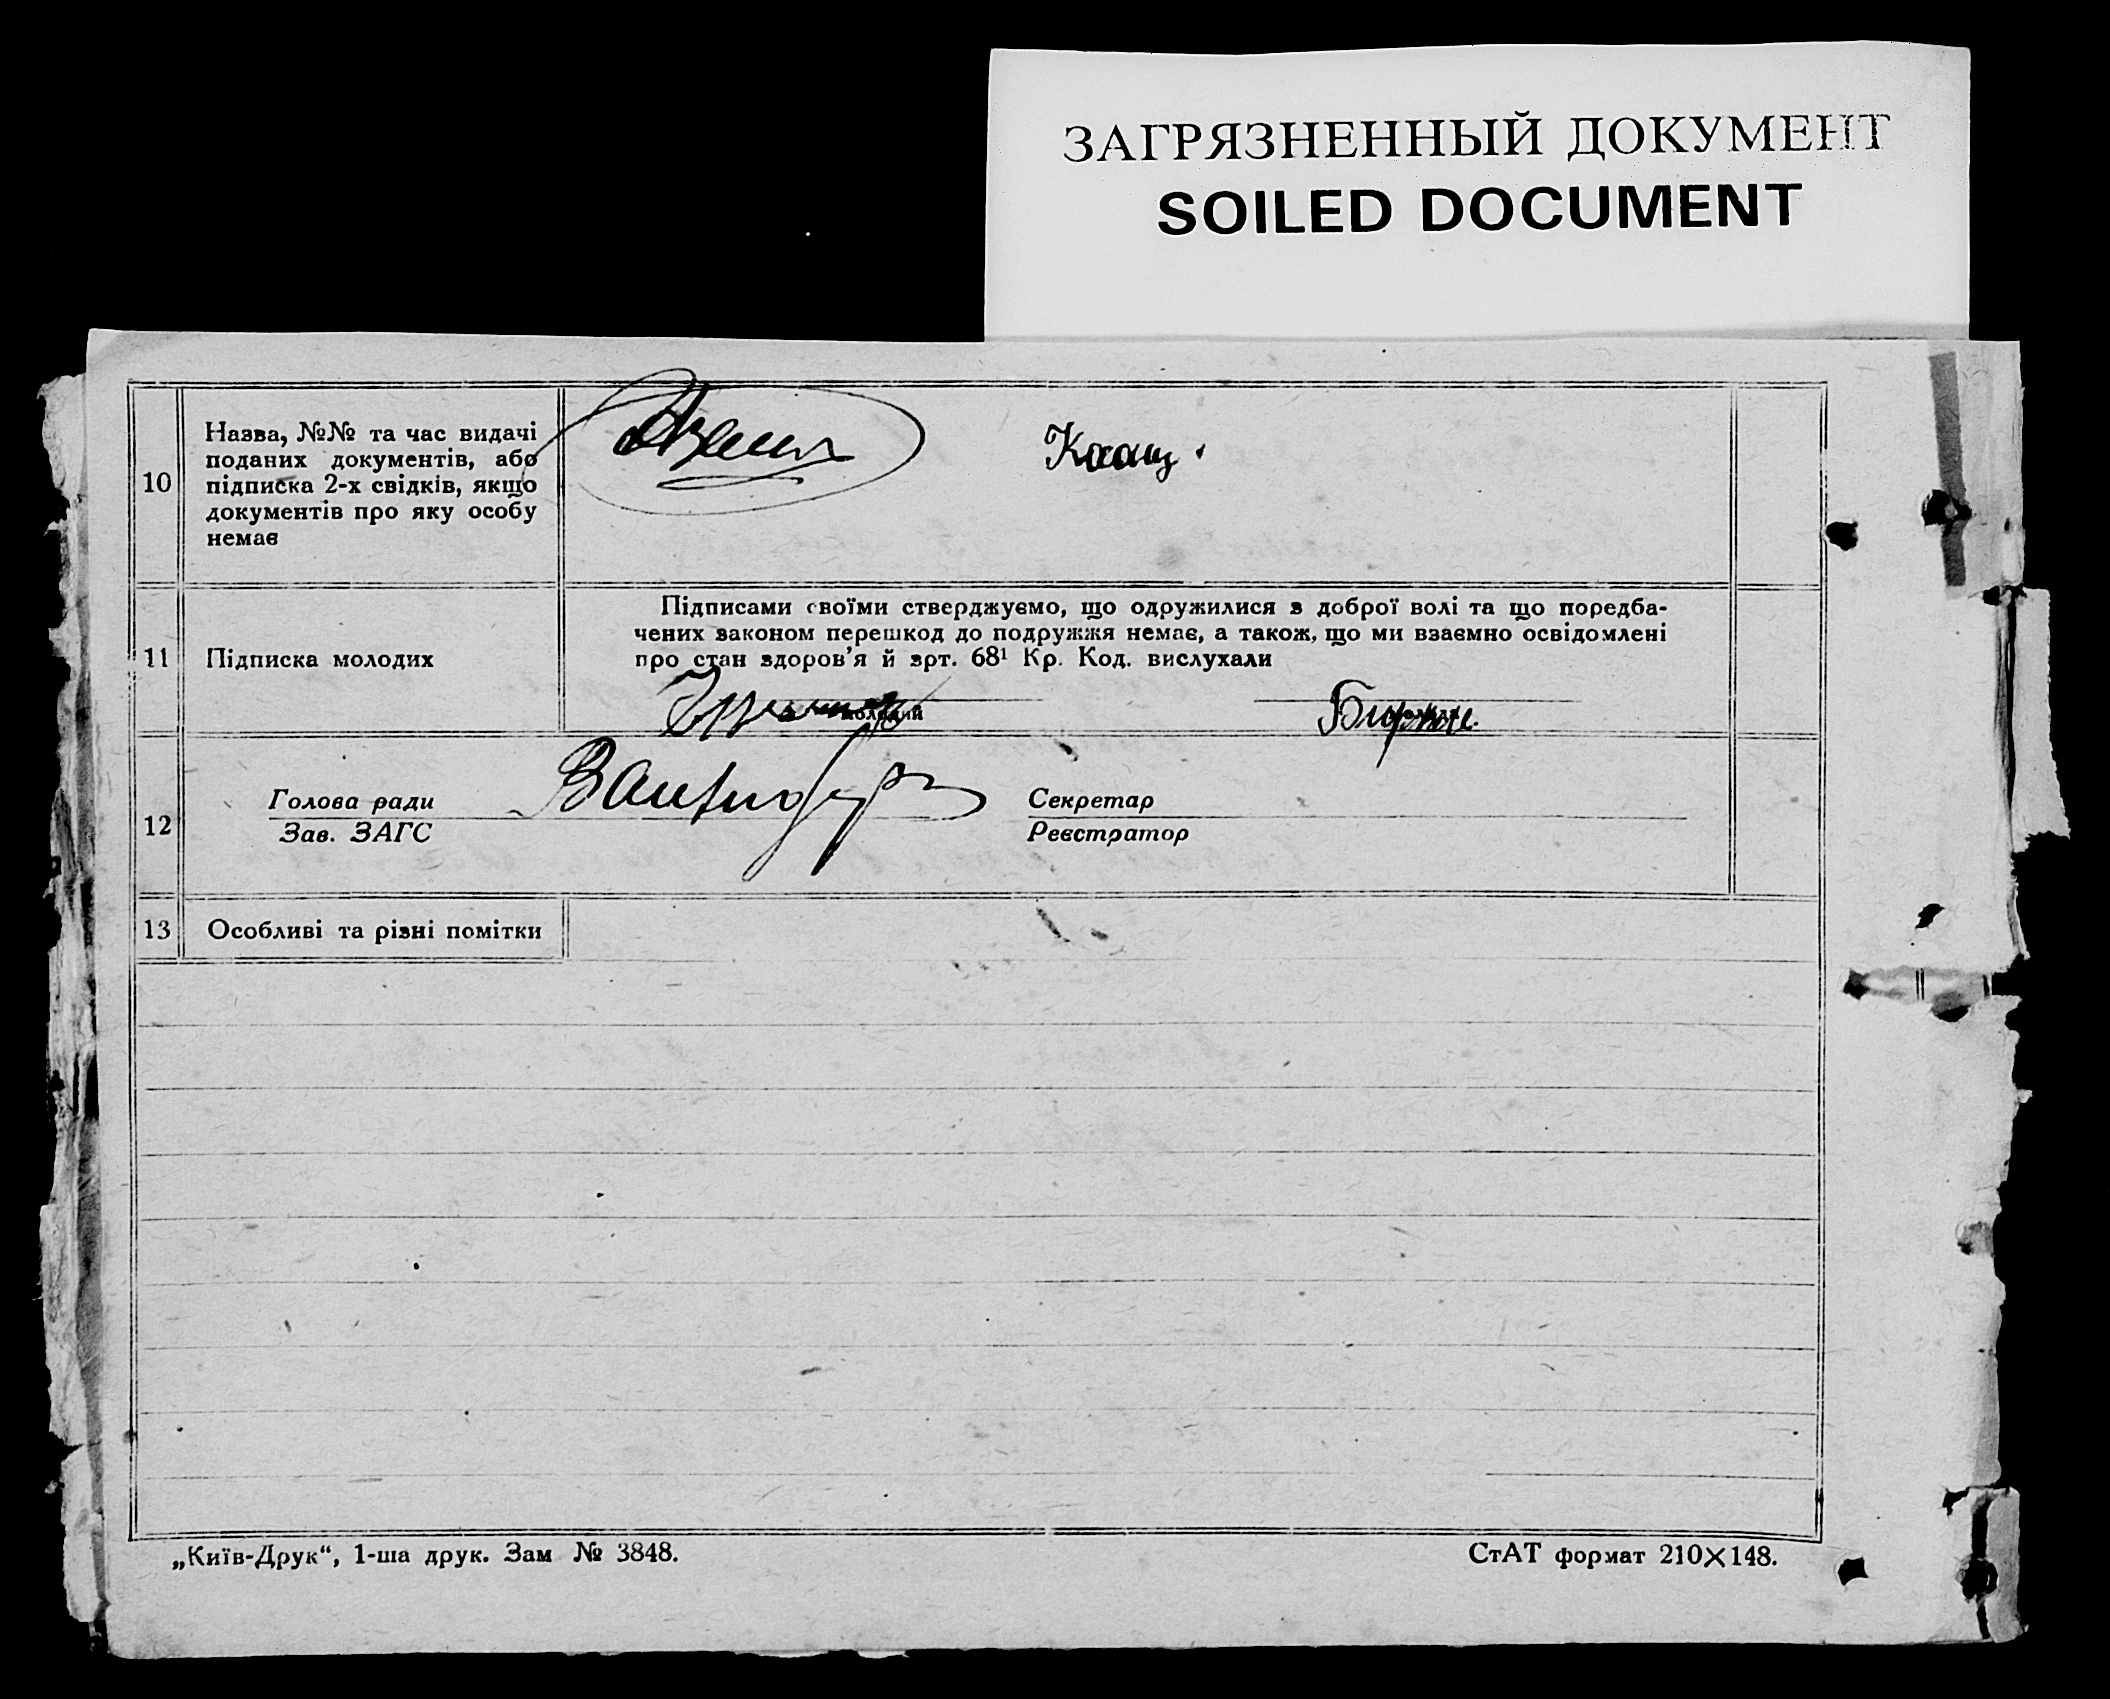 ЗАГРЯЗНЕННЫЙ ДОКУМЕНТ
SOILED DOCUMENT
10
Назва, №№ та час видачі
поданих документів, або
підписка 2-х свідків, якщо
документів про яку особу
немає
11
Підписка молодих
Підписами своїми стверджуємо, що одружилися з доброї волі та що поредба-
чених законом перешкод до подружжя немає, а також, що ми взаємно освідомлені
про стан здоров’я й арт. 68¹ Кр. Код. вислухали
молодий
12
Голова ради
Зав. ЗАГС
Секретар
Реєстратор
13
Особливі та різні помітки
„Київ-Друк“, 1-ша друк. Зам № 3848.
СтАТ формат 210×148.